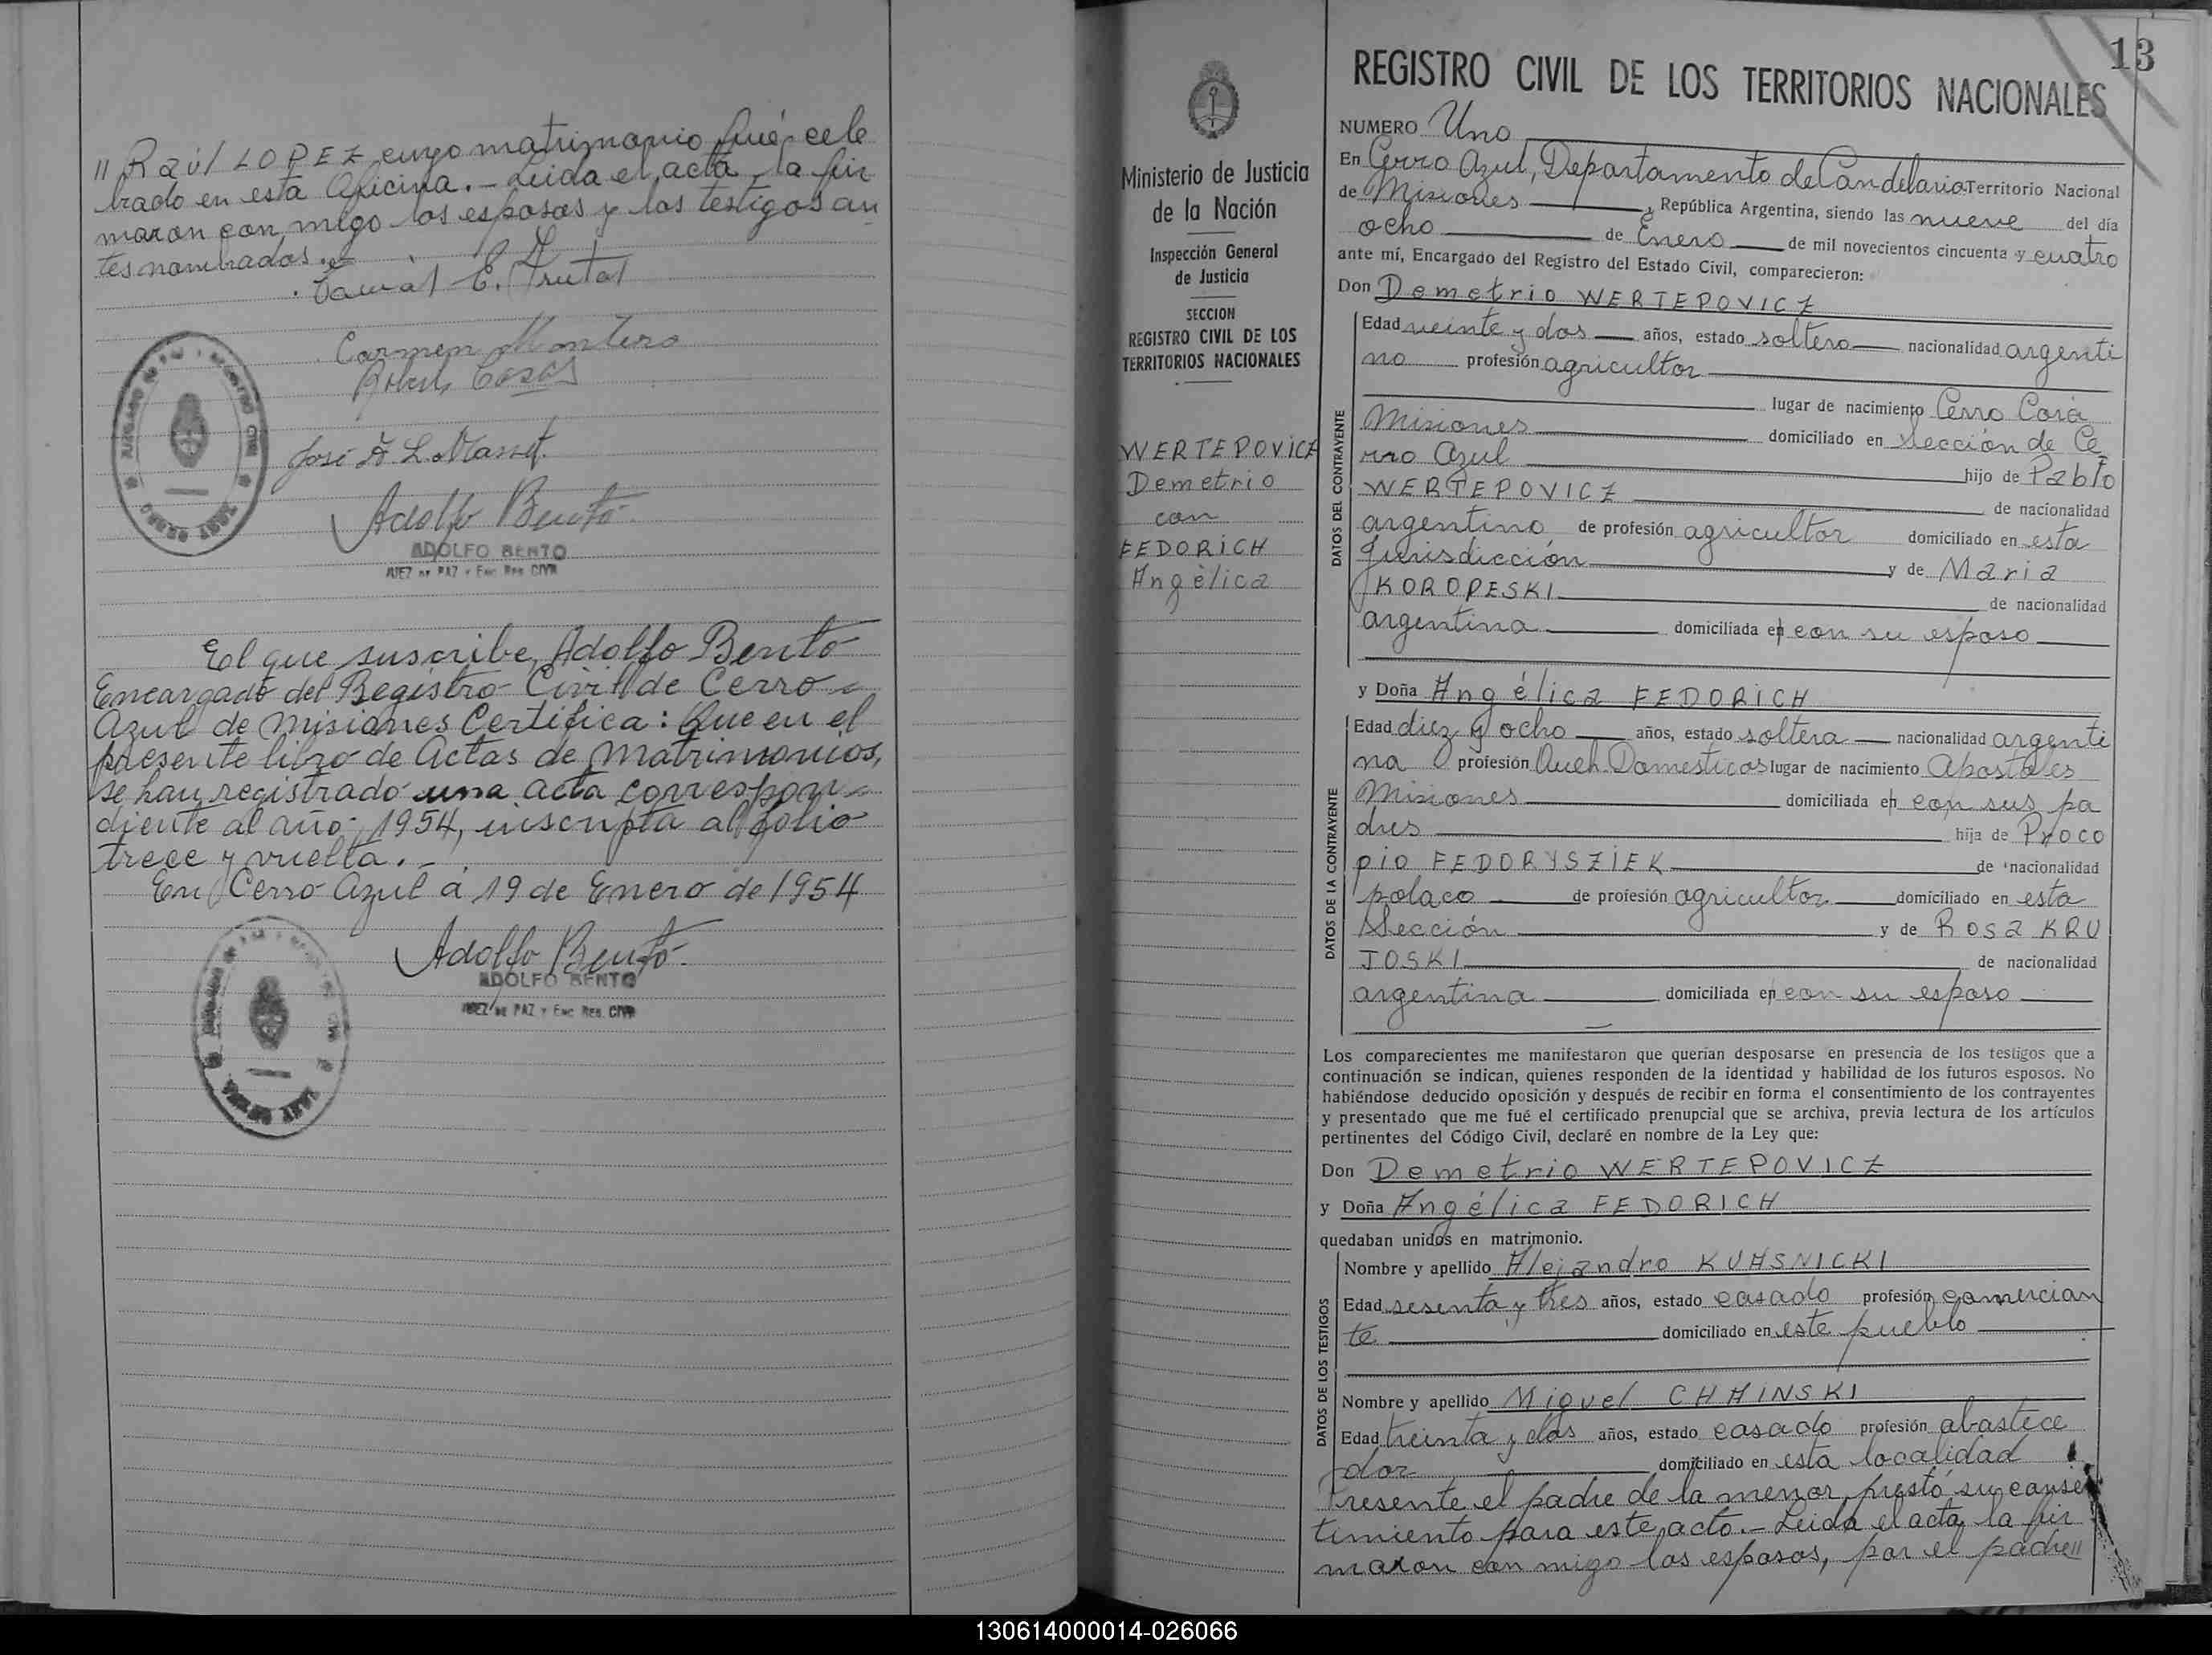 // Raúl LOPEZ cuyo matrimonio fué cele
brado en esta Oficina.- Leida el acta la fir
maron con migo los esposos y los testigos an
tes nombrados.-
Carmen Montero
Adolfo Bento
ADOLFO BENTO
JUEZ DE PAZ Y ENC REG CIVIL
El que suscribe, Adolfo Bento
Encargado del Registro Civil de Cerro
Azul de Misiones Certifica: Que en el
presente libro de Actas de Matrimonios,
se han registrado una acta correspon-
diente al año 1954, inscripta al folio
trece y vuelta.-
En Cerro Azul á 19 de Enero de 1954
Adolfo Bento
ADOLFO BENTO
JUEZ DE PAZ Y ENC REG. CIVIL
Ministerio de Justicia
de la Nación
Inspección General
de Justicia
SECCION
REGISTRO CIVIL DE LOS
TERRITORIOS NACIONALES
WERTEPOVICZ
Demetrio
con
FEDORICH
Angélica
13
REGISTRO CIVIL DE LOS TERRITORIOS NACIONALES
NUMERO Uno
En Cerro Azul, Departamento de Candelaria Territorio Nacional
de Misiones, República Argentina, siendo las nueve del día
ocho de Enero de mil novecientos cincuenta y cuatro
ante mí, Encargado del Registro del Estado Civil, comparecieron:
Don Demetrio WERTEPOVICZ
DATOS DEL CONTRAYENTE
Edad veinte y dos años, estado soltero nacionalidad argenti
no profesión agricultor
lugar de nacimiento Cerro Corá
Misiones domiciliado en Sección de Ce
rro Azul hijo de Pablo
WERTEPOVICZ de nacionalidad
argentino de profesión agricultor domiciliado en esta
jurisdicción y de Maria
KOROPESKI de nacionalidad
argentina domiciliada en con su esposo
y Doña Angélica FEDORICH
DATOS DE LA CONTRAYENTE
Edad diez y ocho años, estado soltera nacionalidad argenti
na profesión Queh. Domesticos lugar de nacimiento Apostoles
Misiones domiciliada en con sus pa
dres hija de Proco
pio FEDORYSZIEK de nacionalidad
polaco de profesión agricultor domiciliado en esta
Sección y de Rosa KRU
JOSKI de nacionalidad
argentina domiciliada en con su esposo
Los comparecientes me manifestaron que querían desposarse en presencia de los testigos que a
continuación se indican, quienes responden de la identidad y habilidad de los futuros esposos. No
habiéndose deducido oposición y después de recibir en forma el consentimiento de los contrayentes
y presentado que me fué el certificado prenupcial que se archiva, previa lectura de los artículos
pertinentes del Código Civil, declaré en nombre de la Ley que:
Don Demetrio WERTEPOVICZ
y Doña Angélica FEDORICH
quedaban unidos en matrimonio.
DATOS DE LOS TESTIGOS
Nombre y apellido Alejandro KUHSNICKI
Edad sesenta y tres años, estado casado profesión comercian
te domiciliado en este pueblo
Nombre y apellido Miguel CHHINSKI
Edad treinta y dos años, estado casado profesión abastece
dor domiciliado en esta localidad
Presente el padre de la menor, prestó su consen
timiento para este acto.- Leida el acta la fir
maron con migo los esposos, por el padre//
130614000014-026066